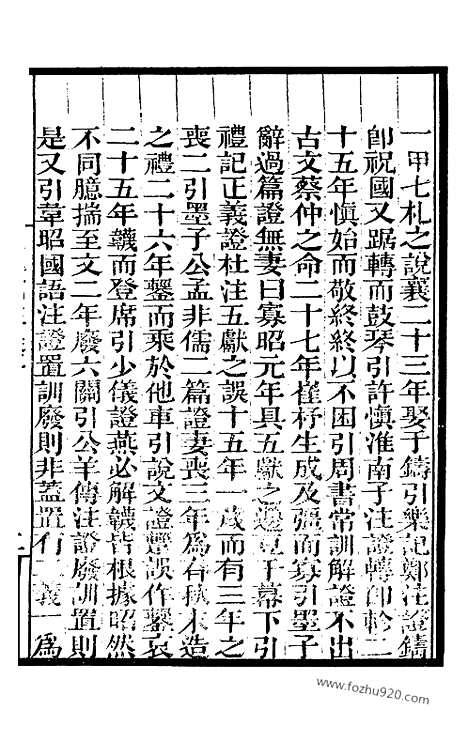 一甲七札之說襄二十三年娶于鑄引樂記鄭注證鑄
卽祝國又踞轉而鼓琴引許慎淮南子注證轉卽軫二
十五年慎始而敬終終以不困引周書常訓解證不出
古文蔡仲之命二十七年崔杼生成及彊而寡引墨子
辭過篇證無妻曰寡昭元年具五獻之籩豆于幕下引
禮記正義證杜注五獻之誤十五年一歲而有三年之
喪二引墨子公孟非儒二篇證妻喪三年爲春秋末造
之禮二十六年鑋而乘於他車引說文證鑋誤作鑋哀
二十五年韤而登席引少儀證燕必解韤皆根據昭然
不同臆揣至文二年廢六關引公羊傳注證廢訓置則
是又引韋昭國語注證置訓廢則非蓋置有二義一爲
www.fozhu920.com